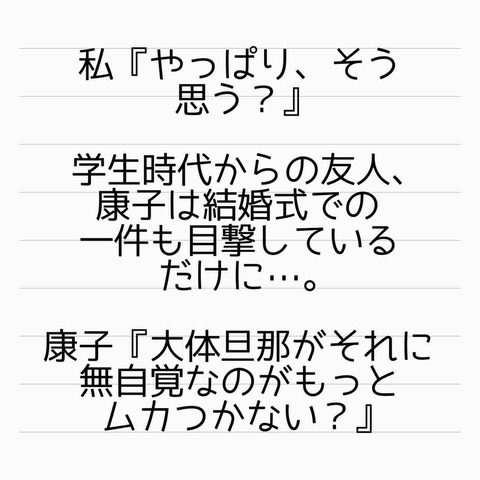 私『やっぱり、そう
思う？』
学生時代からの友人、
康子は結婚式での
一件も目撃している
だけに…。
康子『大体旦那がそれに
無自覚なのがもっと
ムカつかない？』